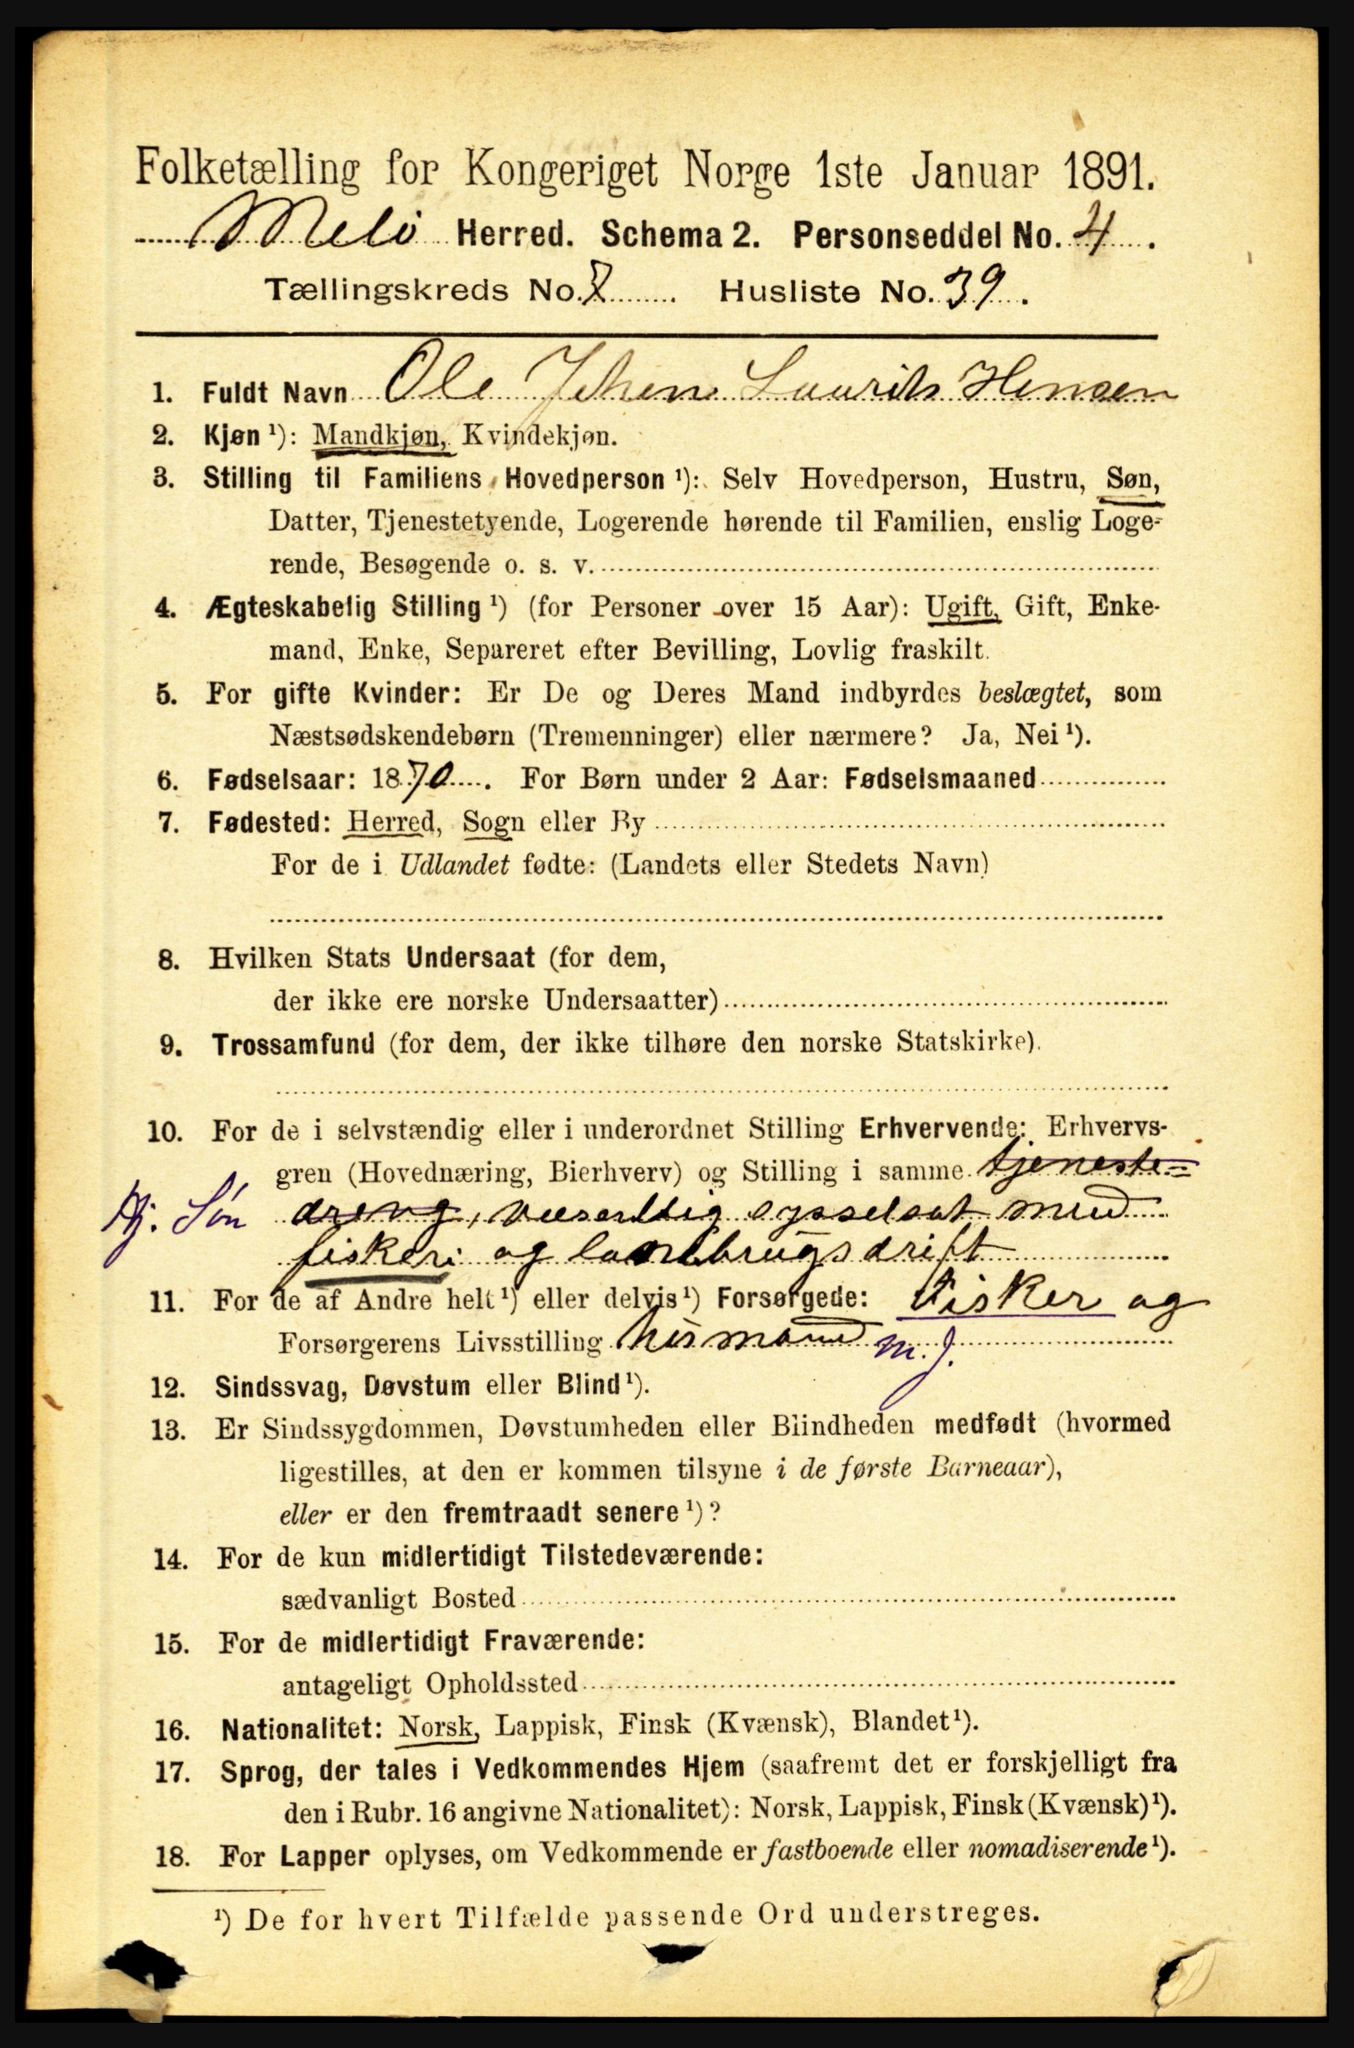 Folketælling for Kongeriget Norge 1ste Januar 1891.
Melö Herred. Schema 2. Personseddel No. 4.
Tællingskreds No. 7. Husliste No. 39.
1. Fuldt Navn Ole Johan Laurits Hensen
2. Kjøn ¹): Mandkjøn, Kvindekjøn.
3. Stilling til Familiens Hovedperson ¹): Selv Hovedperson, Hustru, Søn,
Datter, Tjenestetyende, Logerende hørende til Familien, enslig Loge-
rende, Besøgende o. s. v.
4. Ægteskabelig Stilling ¹) (for Personer over 15 Aar): Ugift, Gift, Enke-
mand, Enke, Separeret efter Bevilling, Lovlig fraskilt.
5. For gifte Kvinder: Er De og Deres Mand indbyrdes beslægtet, som
Næstsødskendebørn (Tremenninger) eller nærmere? Ja, Nei ¹).
6. Fødselsaar: 1870. For Børn under 2 Aar: Fødselsmaaned
7. Fødested: Herred, Sogn eller By
For de i Udlandet fødte: (Landets eller Stedets Navn)
8. Hvilken Stats Undersaat (for dem,
der ikke ere norske Undersaatter)
9. Trossamfund (for dem, der ikke tilhøre den norske Statskirke).
10. For de i selvstændig eller i underordnet Stilling Erhvervende: Erhvervs-
gren (Hovednæring, Bierhverv) og Stilling i samme tjeneste=
Hj. Sön dreng, væsentlig sysselsat med
fiskeri og landbrugsdrift
11. For de af Andre helt ¹) eller delvis ¹) Forsørgede: Fisker og
Forsørgerens Livsstilling husmand m. J.
12. Sindssvag, Døvstum eller Blind ¹).
13. Er Sindssygdommen, Døvstumheden eller Blindheden medfødt (hvormed
ligestilles, at den er kommen tilsyne i de første Barneaar),
eller er den fremtraadt senere ¹)?
14. For de kun midlertidigt Tilstedeværende:
sædvanligt Bosted
15. For de midlertidigt Fraværende:
antageligt Opholdssted
16. Nationalitet: Norsk, Lappisk, Finsk (Kvænsk), Blandet ¹).
17. Sprog, der tales i Vedkommendes Hjem (saafremt det er forskjelligt fra
den i Rubr. 16 angivne Nationalitet): Norsk, Lappisk, Finsk (Kvænsk) ¹).
18. For Lapper oplyses, om Vedkommende er fastboende eller nomadiserende ¹).
¹) De for hvert Tilfælde passende Ord understreges.